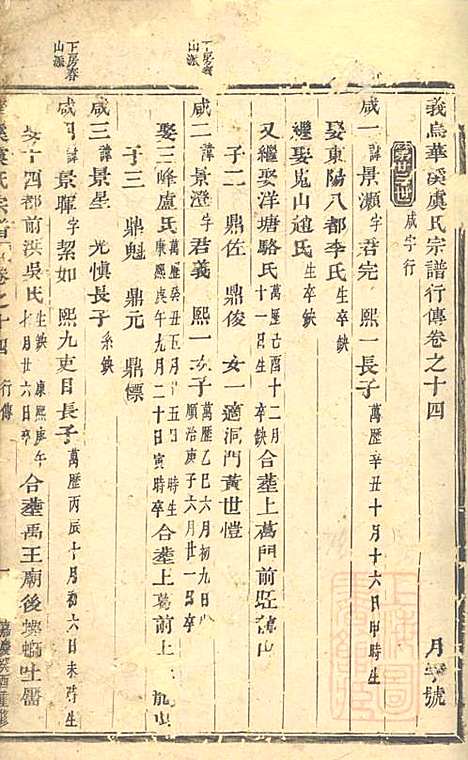 義烏華溪虞氏宗譜行傳卷之十四
月字號
第廿三世
咸字行
咸一 諱景灝 字君完 熙一長子 萬歷辛丑十月十六日申時生
娶東陽八都李氏 生卒缺
繼娶嵬山趙氏 生卒缺
又繼娶洋塘駱氏 萬歷己酉十二月十一日生 卒缺 合塟上葛門前
子二 鼎佐 鼎俊 女一適洞門黃世愷
下房義山派
咸二 諱景澄 字君義 熙一次子 萬歷乙巳六月初九日 順治庚子六月廿一日卒
娶三峰盧氏 萬歷癸丑五月十五日時生 康熙庚午九月二十日寅時卒 合塟上葛前上
子三 鼎魁 鼎元 鼎標
咸三 諱景星 光慎長子 系缺
下房春山派
咸四 諱景暉 字絜如 熙九吏目長子 萬歷丙辰十月初六日未時生
娶十四都前洪吳氏 生缺 康熙庚午七月廿六日卒 合塟禹王廟後
華溪虞氏宗譜 卷之十四 行傳 一 嘉慶癸酉重修